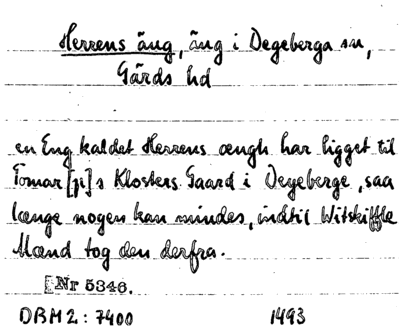 Herrens äng, äng i Degeberga sn,
Gärds hd
en Eng kaldet Herrens ængh har ligget til
Tomar[p]s Klosters Gaard i Degeberge, saa
længe nogen kan mindes, indtil Witskiffle
Mænd tog den derfra.
[Nr 5346.
DRM 2: 7400 1493